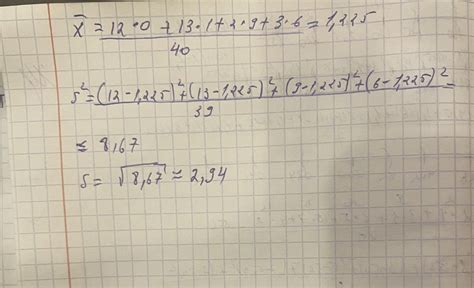 x̄ = 12·0 + 13·1 + 2·9 + 3·6 / 40 = 1,225
s² = (12-1,225)² + (13-1,225)² + (9-1,225)² + (6-1,225)² / 39 =
≈ 8,67
s = √8,67 ≈ 2,94